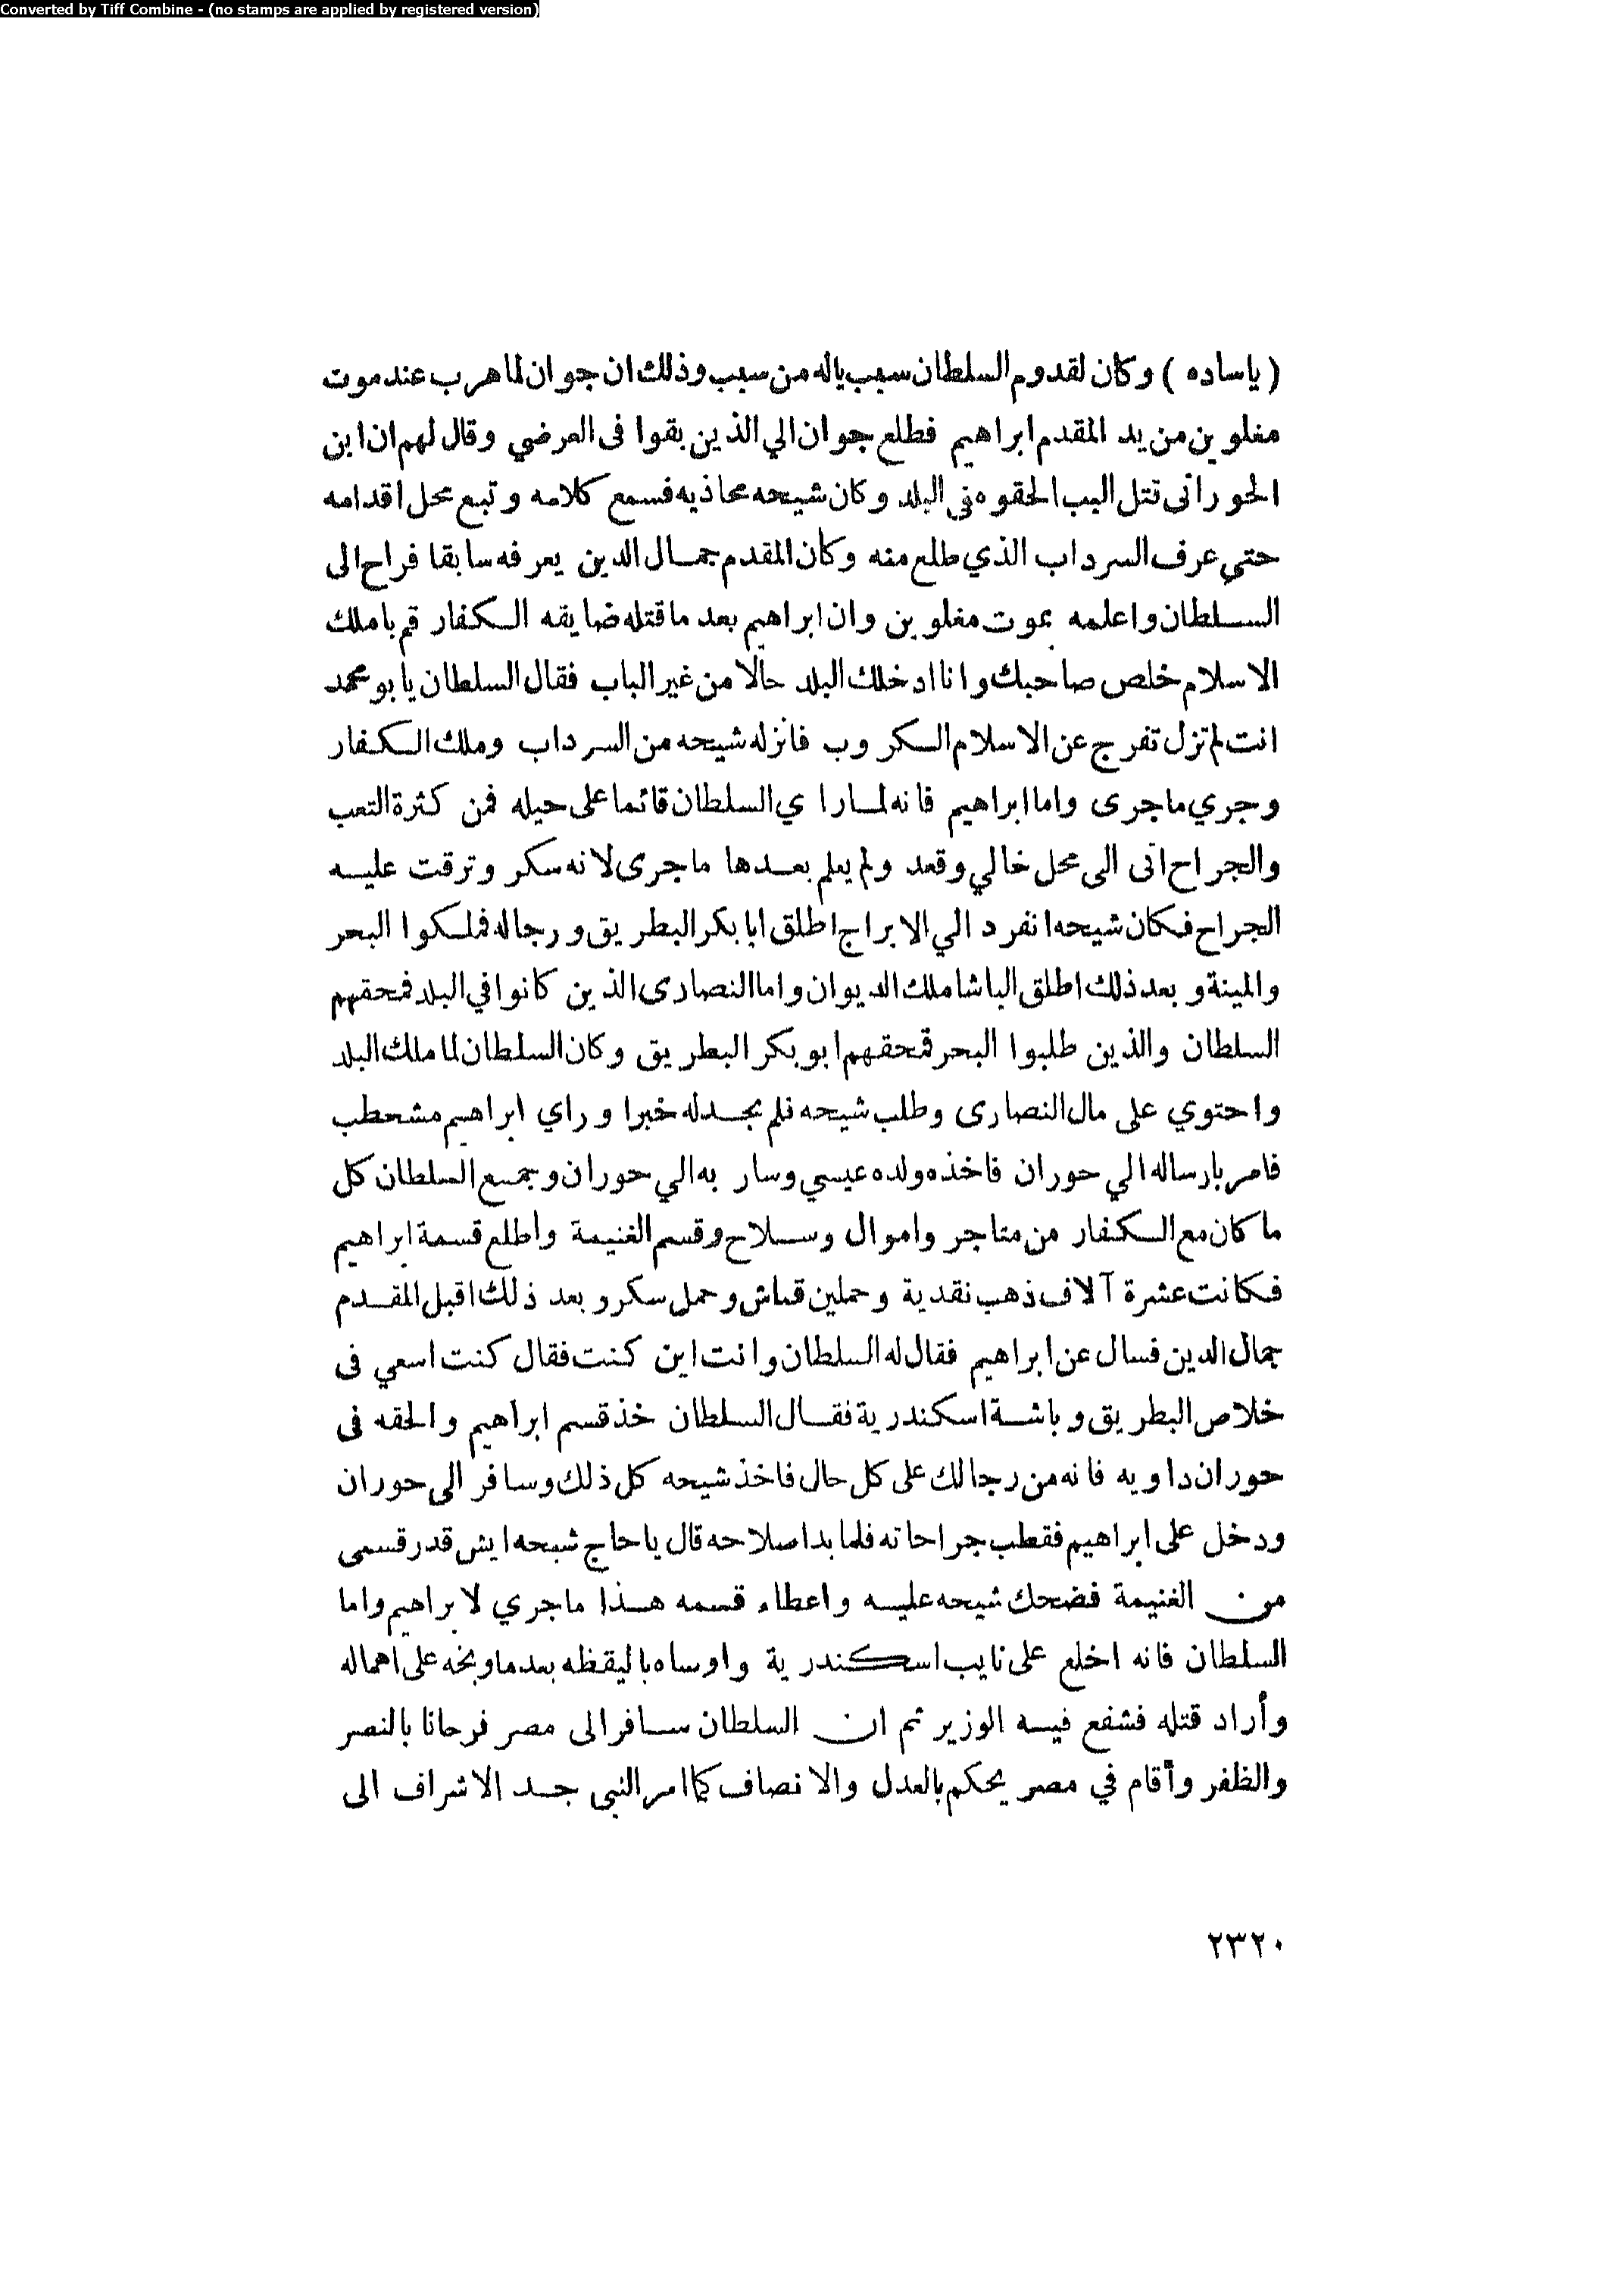 Converted by Tiff Combine - (no stamps are applied by registered version)
( ياساده ) وكان لقدوم السلطان سبب ياله من سبب وذلك ان جوان لما هرب عند موت
مغلوين من يد المقدم ابراهيم فطلع جوان الي الذين بقوا فى العرضي وقال لهم ان ابن
الحورانى قتل البب الحقوه فى البلد وكان شيحه محاذيه فسمع كلامه وتبع محل اقدامه
حتي عرف السرداب الذي طلع منه وكان المقدم جمال الدين يعرفه سابقا فراح الى
السلطان واعلمه بموت مغلوين وان ابراهيم بعد ما قتله ضايقه الكفار قم يا ملك
الاسلام خلص صاحبك وانا ادخلك البلد حالا من غير الباب فقال السلطان يا بو محمد
انت لم تزل تفرج عن الاسلام الكروب فانزله شيحه من السرداب وملك الكفار
وجري ماجرى واما ابراهيم فانه لما راي السلطان قائما على حيله فمن كثرة التعب
والجراح اتى الى محل خالي وقعد ولم يعلم بعدها ماجرى لانه سكر وترقت عليه
الجراح فكان شيحه انفرد الي الابراج اطلق ابا بكر البطريق ورجاله فملكوا البحر
والمينة وبعد ذلك اطلق الباشا ملك الديوان واما النصارى الذين كانوا في البلد فمحقهم
السلطان والذين طلبوا البحر فمحقهم ابو بكر البطريق وكان السلطان لما ملك البلد
واحتوي على مال النصارى وطلب شيحه فلم يجد له خبرا وراي ابراهيم مشحطب
فامر بارساله الي حوران فاخذه ولده عيسي وسار به الي حوران وجمع السلطان كل
ما كان مع الكفار من متاجر واموال وسلاح وقسم الغنيمة واطلع قسمة ابراهيم
فكانت عشرة آلاف ذهب نقدية وحملين قماش وحمل سكر وبعد ذلك اقبل المقدم
جمال الدين فسال عن ابراهيم فقال له السلطان وانت اين كنت فقال كنت اسعي فى
خلاص البطريق وباشة اسكندرية فقال السلطان خذ قسم ابراهيم والحقه فى
حوران داويه فانه من رجالك على كل حال فاخذ شيحه كل ذلك وسافر الى حوران
ودخل على ابراهيم فقطب جراحاته فلما بدا صلاحه قال يا حاج شيحه ايش قدر قسمى
من الغنيمة فضحك شيحه عليه واعطاه قسمه هذا ماجري لابراهيم واما
السلطان فانه اخلع على نايب اسكندرية واوساه باليقظه بعد ما وبخه على اهماله
وأراد قتله فشفع فيه الوزير ثم ان السلطان سافر الى مصر فرحانا بالنصر
والظفر وأقام في مصر يحكم بالعدل والانصاف كما امر النبى جد الاشراف الى
٢٣٢٠